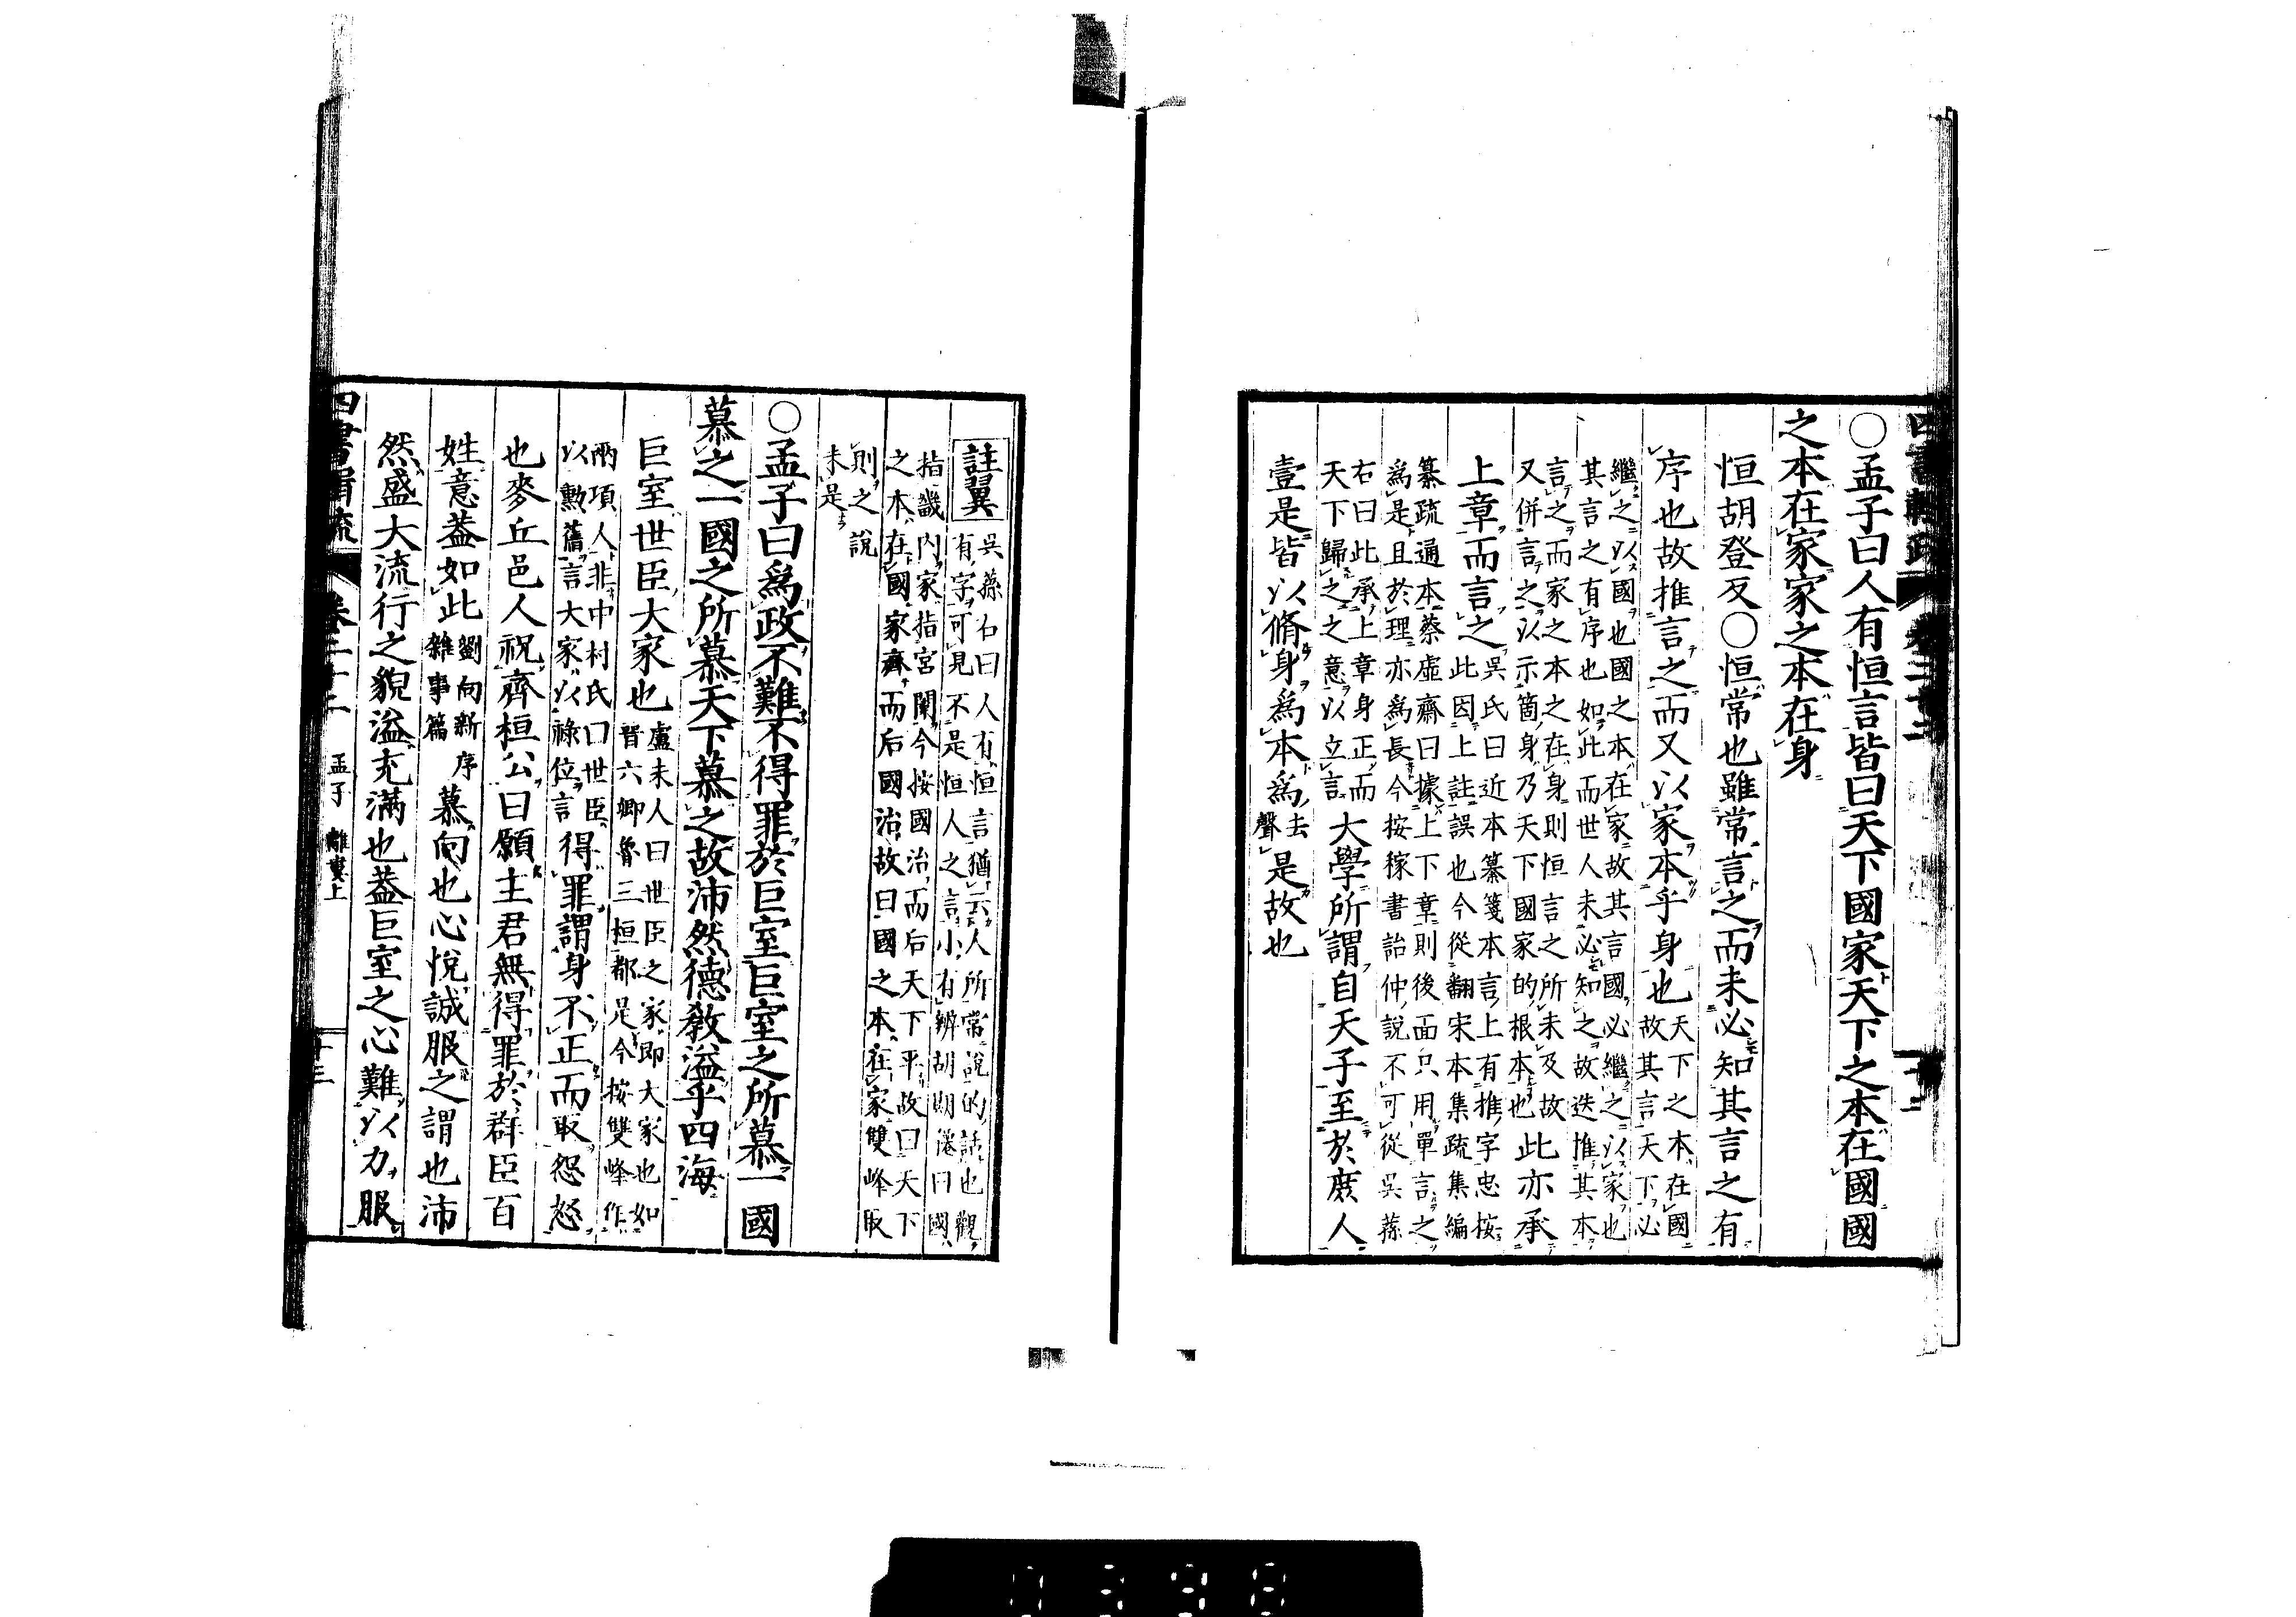 ○孟子曰人有恒言皆曰天下國家天下之本在國國
之本在家家之本在身
恒胡登反○恒常也雖常言之而未必知其言之有
序也故推言之而又以家本乎身也天下之本在國
故其言天下必
繼之以國也國之本在家故其言國必繼之以家也
其言之有序也如此而世人未必知之故迭推其本
言之而家之本之在身則恒言之所未及故
又併言之以示箇身乃天下國家的根本也此亦承
上章而言之吳氏曰近本纂箋本言上有推字忠按
此因上註誤也今從翻宋本集疏集編
纂疏通本蔡虛齋曰據上下章則後面只用單言之
爲是且於理亦爲長今按稼書詒仲說不可從吳蓀
右曰此承上章身正而
天下歸之之意以立言大學所謂自天子至於庶人
壹是皆以脩身爲本爲去聲是故也
註翼
吳蓀右曰人有恒言猶云人所常說的話也觀
有字可見不是恒人之言小有辨胡期僊曰國
指畿內家指宮闈今按國治而后天下平故曰天下
之本在國家齊而后國治故曰國之本在家雙峰阪
則之說
未是
○孟子曰爲政不難不得罪於巨室巨室之所慕一國
慕之一國之所慕天下慕之故沛然德教溢乎四海
巨室世臣大家也盧未人曰世臣之家即大家也如
晉六卿魯三桓都是今按雙峰作
兩項人非中村氏曰世臣
以勲舊言大家以祿位言得罪謂身不正而取怨怒
也麥丘邑人祝齊桓公曰願主君無得罪於群臣百
姓意蓋如此劉向新序
雜事篇慕向也心悅誠服之謂也沛
然盛大流行之貌溢充滿也蓋巨室之心難以力服
孟子 離婁上
十三